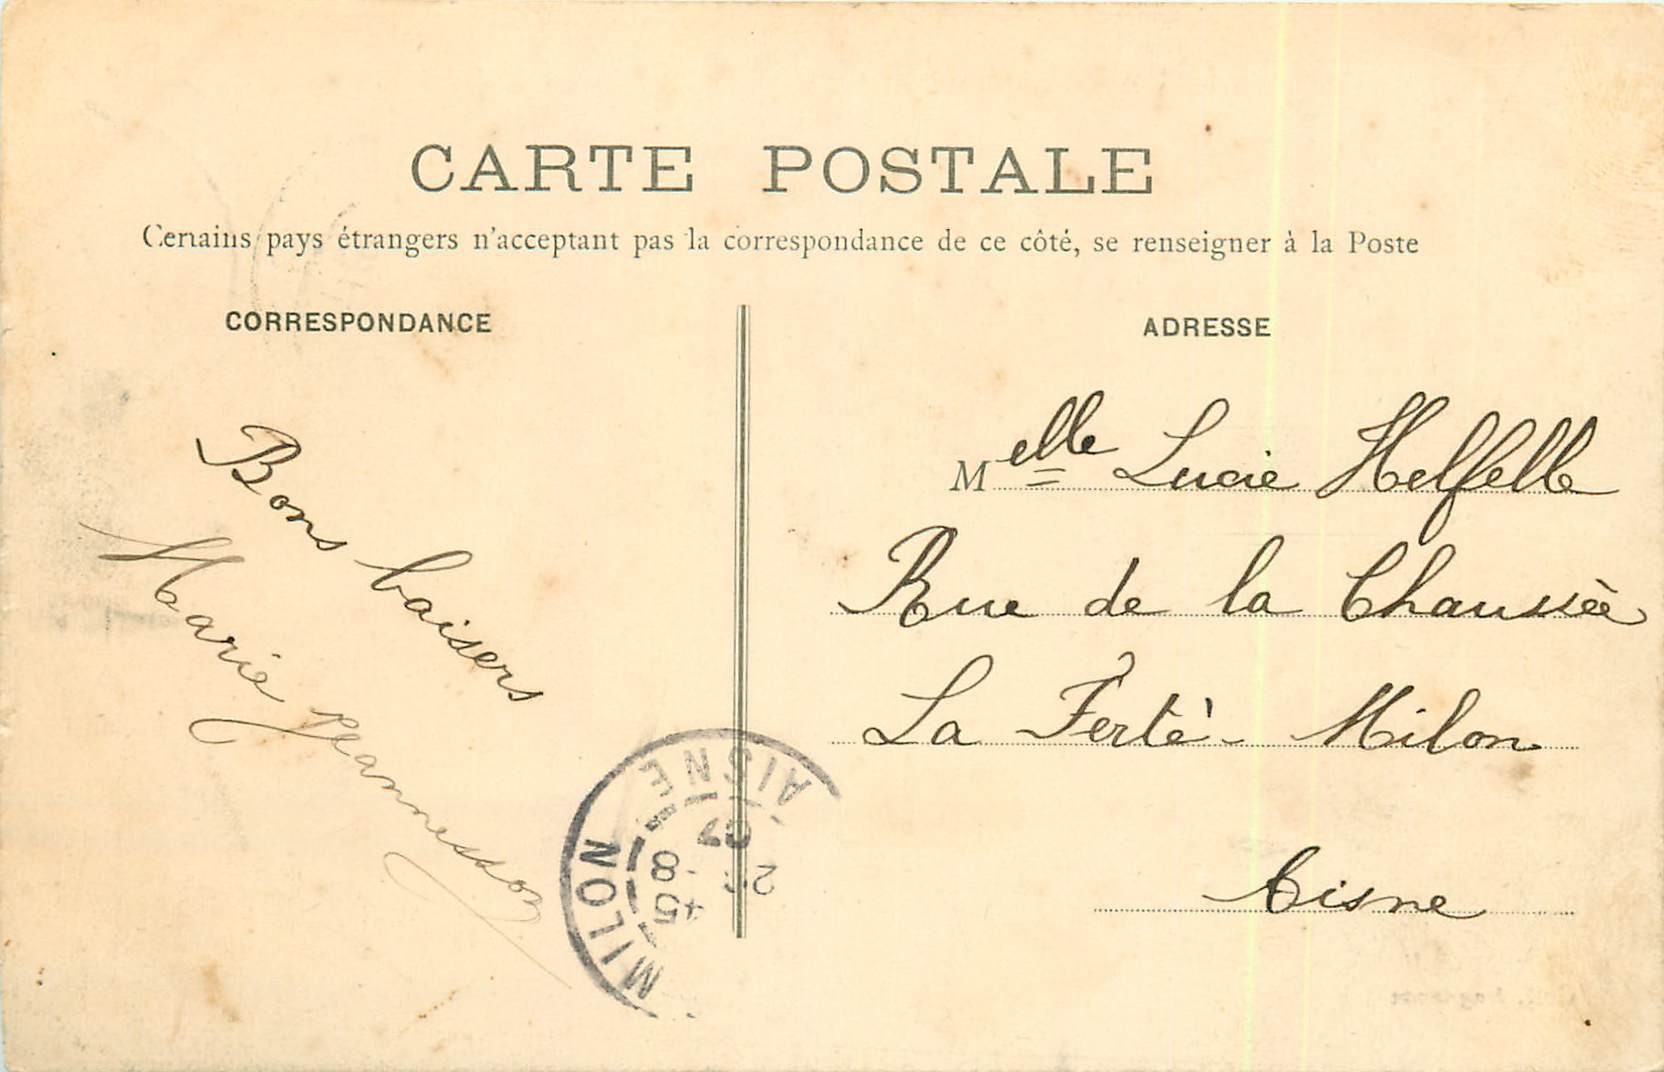 CARTE POSTALE
Certains pays étrangers n'acceptant pas la correspondance de ce côté, se renseigner à la Poste
CORRESPONDANCE
Bons baisers
Marie Jeannesson
ADRESSE
Melle Lucie Helfelle
Rue de la Chaussée
La Ferté-Milon
Aisne
MILON AISNE